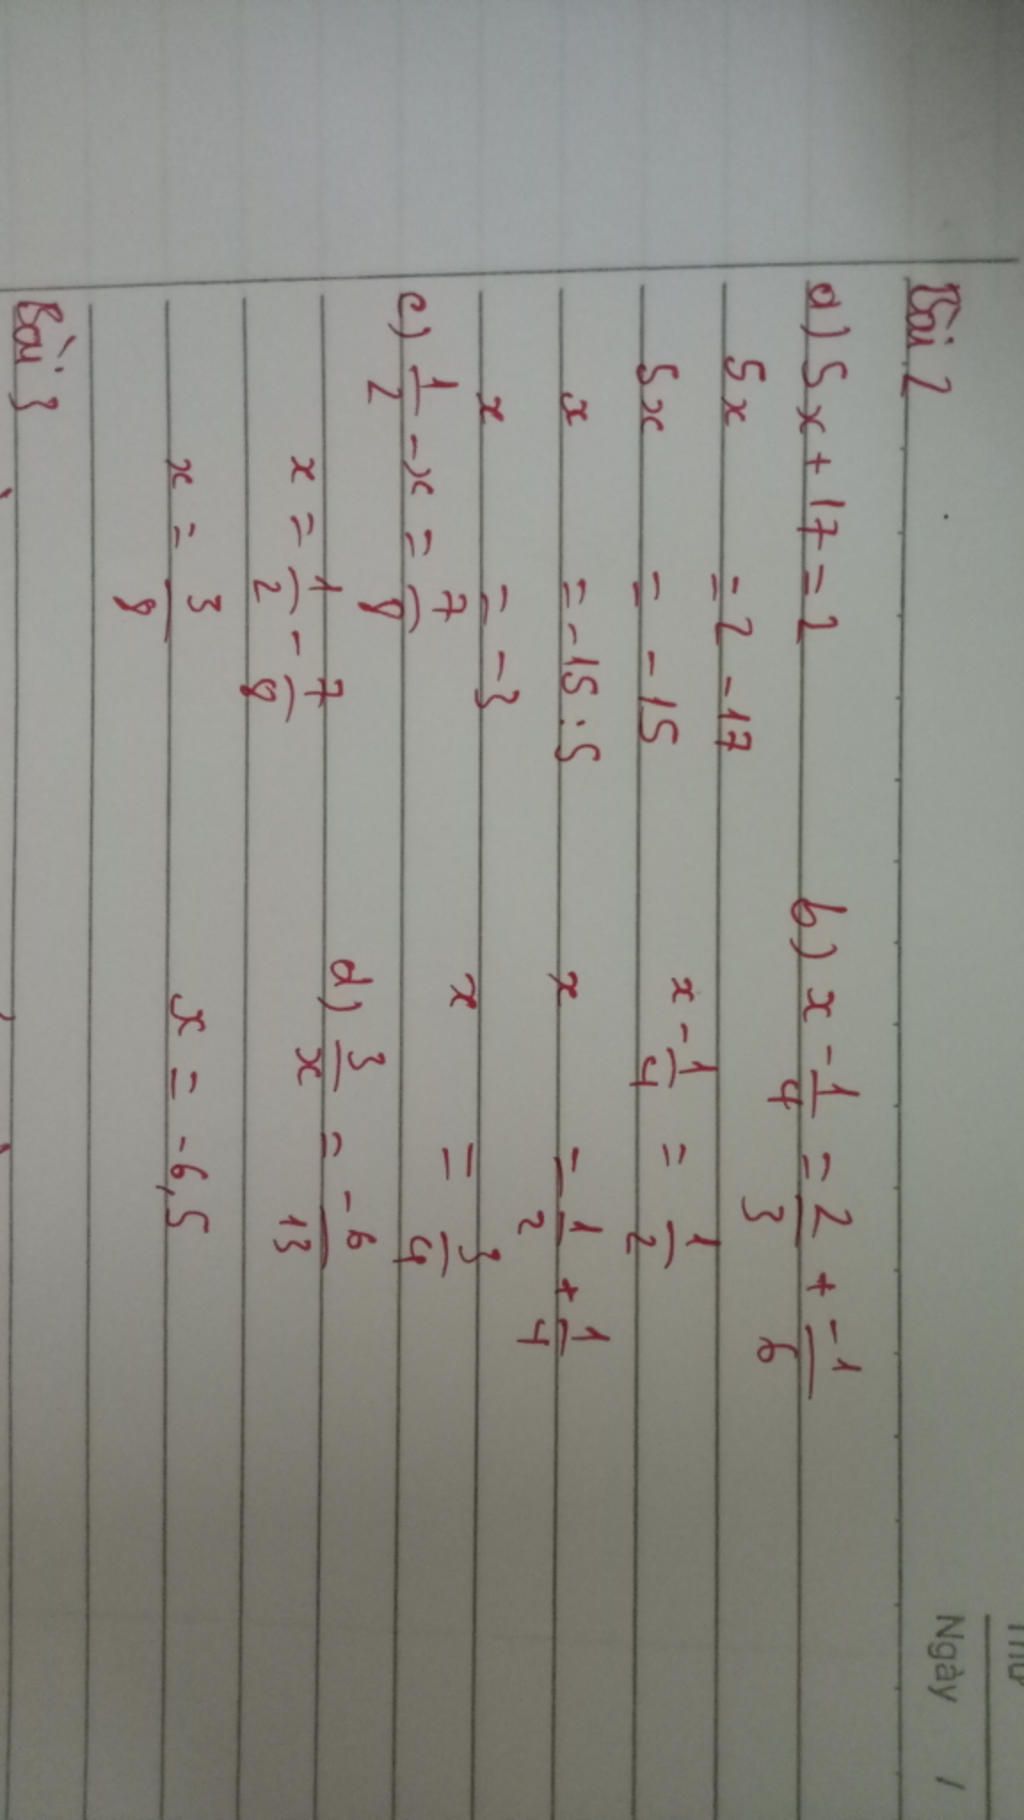 Thứ
Ngày /
Bài 2
a) 5x + 17 = 2
5x = 2 - 17
5x = -15
x = -15 : 5
x = -3
b) x - 1/4 = 2/3 + -1/6
x - 1/4 = 1/2
x = 1/2 + 1/4
x = 3/4
c) 1/2 - x = 7/8
x = 1/2 - 7/8
x = 3/8
d) 3/x = -6/13
x = -6,5
Bài 3